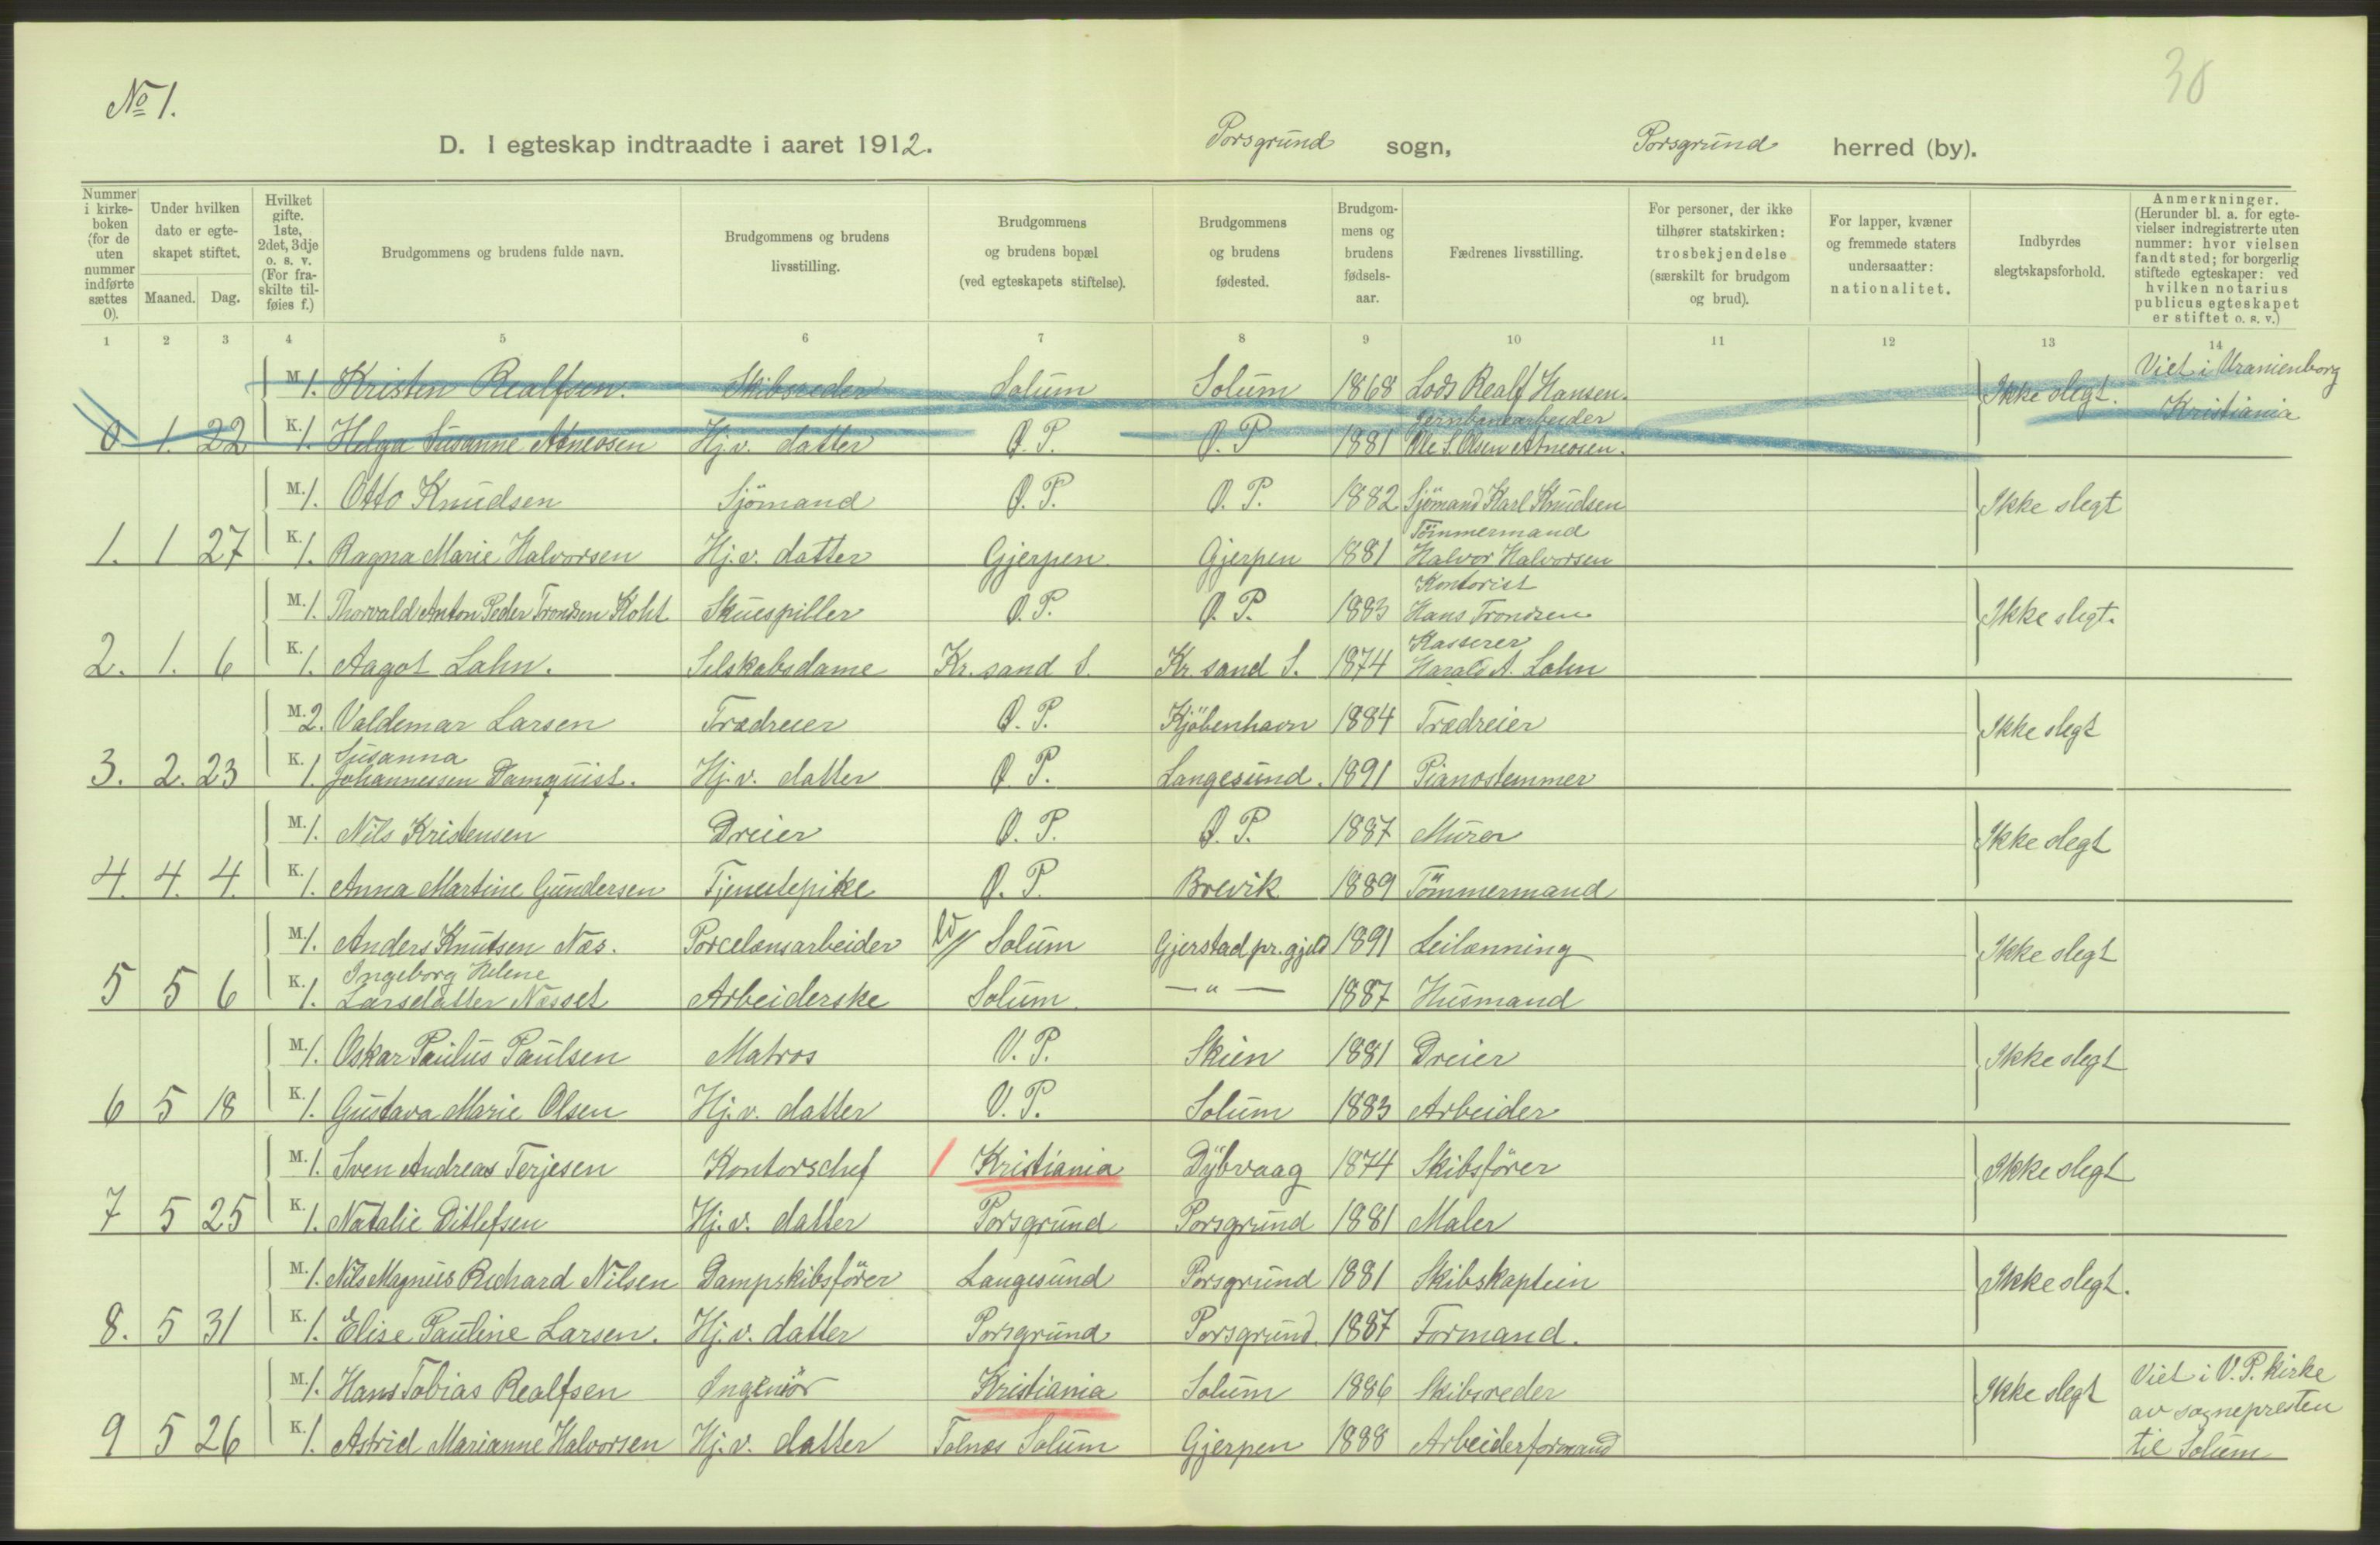 30
No 1.
D. I egteskap indtraadte i aaret 1912. Porsgrund sogn, Porsgrund herred (by).
Nummer i kirke-boken (for de uten nummer indførte sættes 0). Under hvilken dato er egte-skapet stiftet. Maaned. Dag. Hvilket gifte. 1ste, 2det, 3dje o. s. v. (For fra-skilte til-føies f.) Brudgommens og brudens fulde navn. Brudgommens og brudens livsstilling. Brudgommens og brudens bopæl (ved egteskapets stiftelse). Brudgommens og brudens fødested. Brudgom-mens og brudens fødsels-aar. Fædrenes livsstilling. For personer, der ikke tilhører statskirken: trosbekjendelse (særskilt for brudgom og brud). For lapper, kvæner og fremmede staters undersaatter: nationalitet. Indbyrdes slegtskapsforhold. Anmerkninger. (Herunder bl. a. for egte-vielser indregistrerte uten nummer: hvor vielsen fandt sted; for borgerlig stiftede egteskaper: ved hvilken notarius publicus egteskapet er stiftet o. s. v.)
1 2 3 4 5 6 7 8 9 10 11 12 13 14
M. 1. Kristen Realfsen. Skibsreder Solum Solum 1868 Lods Realf Hansen. Ikke slegt. Viet i Uranienborg Kristiania
0. 1. 22 K. 1. Helga Susanne Abneosen Hj.v. datter Ø. P. Ø. P 1881 Jernbanearbeider Ole S. Olsen Abneosen.
M. 1. Otto Knudsen Sjömand Ø. P. Ø. P. 1882 Sjömand Karl Knudsen Ikke slegt
1. 1 27 K. 1. Ragna Marie Halvorsen Hj.v. datter Gjerpen Gjerpen 1881 Tömmermand Halvor Halvorsen
M. 1. Thorvald Anton Peder Trondsen Koht Skuespiller Ø. P. Ø. P. 1883 Kontorist Hans Trondsen Ikke slegt.
2. 1. 6 K. 1. Aagot Lahn. Selskabsdame Kr. sand S. Kr. sand S. 1874 Kasserer Harald A. Lahn
M. 2. Valdemar Larsen Trædreier Ø. P. Kjöbenhavn 1884 Trædreier Ikke slegt
3. 2. 23 K. 1. Susanna Johannessen Damquist. Hj.v. datter Ø P. Langesund. 1891 Pianostemmer
M. 1. Nils Kristensen Dreier Ø. P. Ø. P. 1887 Murer Ikke slegt
4. 4. 4. K. 1. Anna Martine Gundersen Tjenestepike Ø. P. Brevik 1889 Tömmermand
M. 1. Anders Knutsen Næs. Porcelænsarbeider Solum Gjerstad pr.gjeld 1891 Leilænning Ikke slegt
5 5 6 K. 1. Ingeborg Helene Larsdatter Næsset Arbeiderske Solum — " — 1887 Husmand
M. 1. Oskar Paulus Paulsen Matros V. P. Skien 1881 Dreier Ikke slegt
6 5 18 K. 1. Gustava Marie Olsen Hj.v. datter V. P. Solum 1883 Arbeider
M. 1. Sven Andreas Terjesen Kontorschef Kristiania Dybvaag 1874 Skibsförer Ikke slegt
7 5 25 K. 1. Natalie Ditlefsen Hj.v. datter Porsgrund Porsgrund 1881 Maler
M. 1. Nils Magnus Richard Nilsen Dampskibsförer Langesund Porsgrund 1881 Skibskaptein Ikke slegt.
8. 5 31 K. 1. Elise Pauline Larsen. Hj.v. datter Porsgrund Porsgrund. 1887 Formand.
M. 1. Hans Tobias Realfsen Ingeniör Kristiania Solum 1886 Skibsreder Ikke slegt Viet i V. P. kirke av sognepresten til Solum
9 5 26 K. 1. Astrid Marianne Halvorsen Hj.v. datter Tolnæs Solum Gjerpen 1888 Arbeiderformand